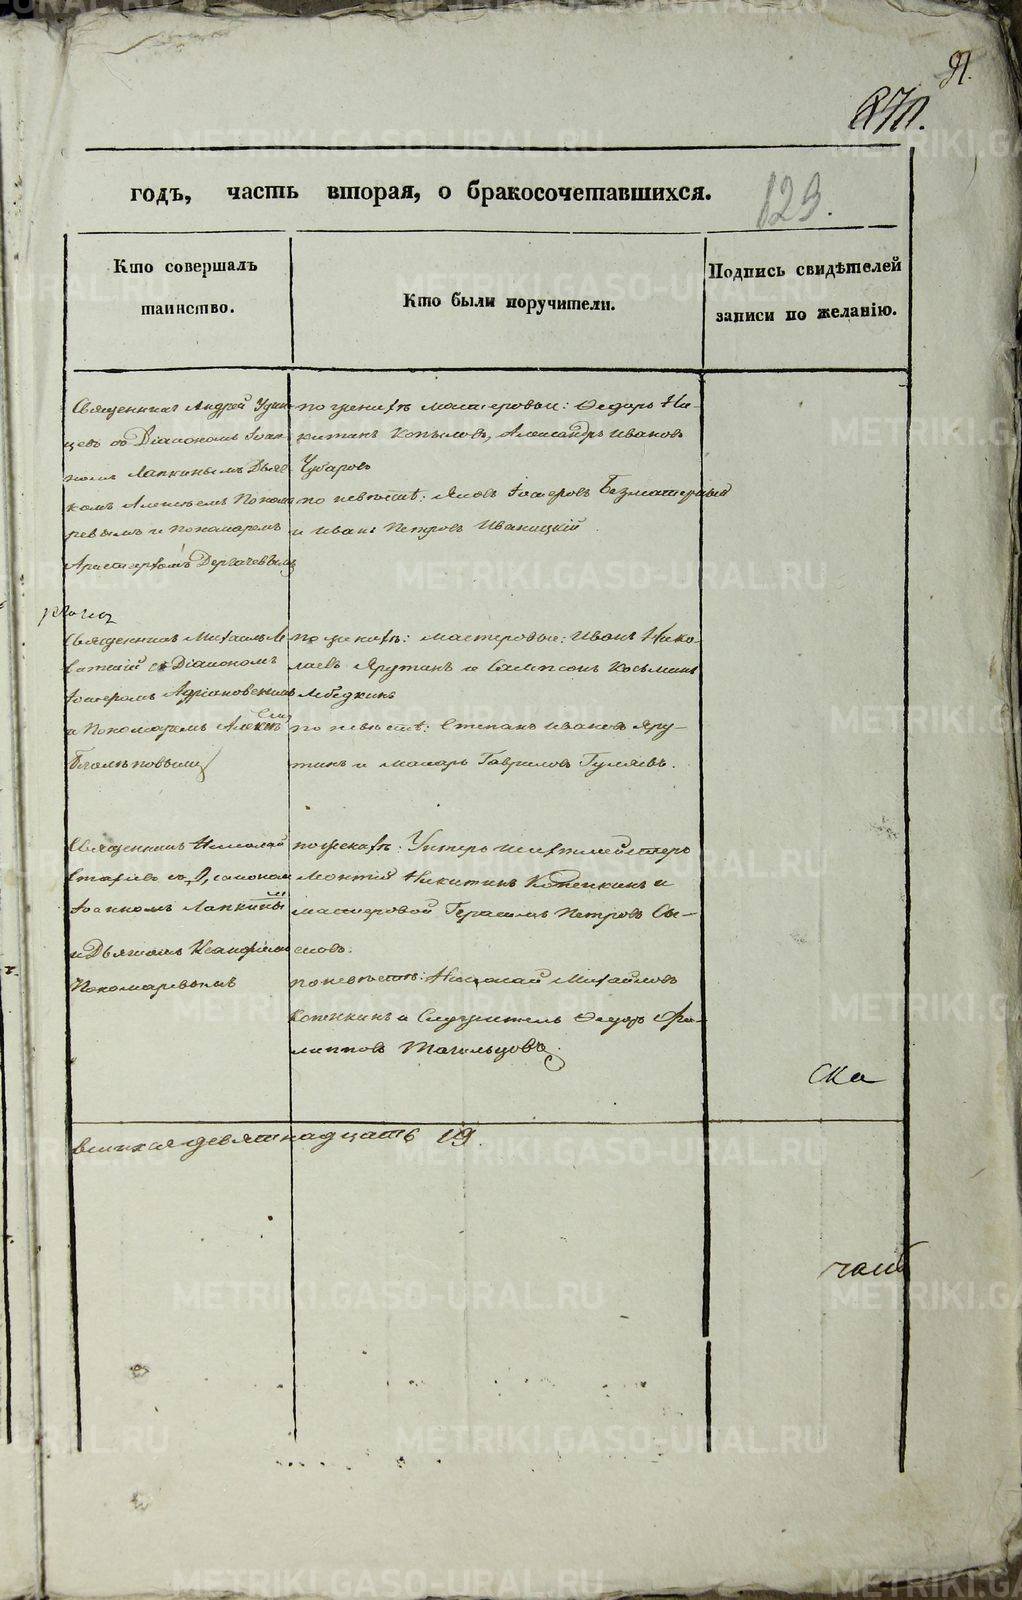 91.
годъ, часть вторая, о бракосочетавшихся.
123.
Кто совершалъ
таинство.
Кто были поручители.
Подпись свидѣтелей
записи по желанію.
Священникъ Андрей
съ Діакономъ Іоан-
номъ Лапкинымъ Дьяч-
комъ Алексѣемъ Понома-
ревымъ и Пономаремъ
Дергачевымъ
по женихѣ мастеровые: Ѳедоръ Ни-
китинъ Копыловъ, Александръ Ивановъ
Чубаровъ
по невѣстѣ: Яковъ Безматерный
и Иванъ Петровъ Иваницкій
Священникъ Михаилъ
съ Діакономъ
Адріановскимъ
и Пономаремъ
по женихѣ: мастеровые: Иванъ Нико-
лаевъ Ярутинъ и Сампсонъ Косьминъ
Лебедкинъ
по невѣстѣ: Степанъ Ивановъ Яру-
тинъ и Гавриловъ Гуляевъ.
Священникъ Николай
съ Діакономъ
Іоанномъ Лапкинымъ
и Дьячкомъ
Пономаревымъ
по женихѣ: Унтеръ шихтмейстеръ
Леонтій Никитинъ Копенкинъ и
мастеровой Герасимъ Петровъ Сы-
соевъ.
по невѣстѣ: Николай Михайловъ
Копенкинъ и Служитель Ѳедоръ Фи-
липповъ Тагильцовъ.
Ска
девятнадцать 19.
METRIKI.GASO-URAL.RU